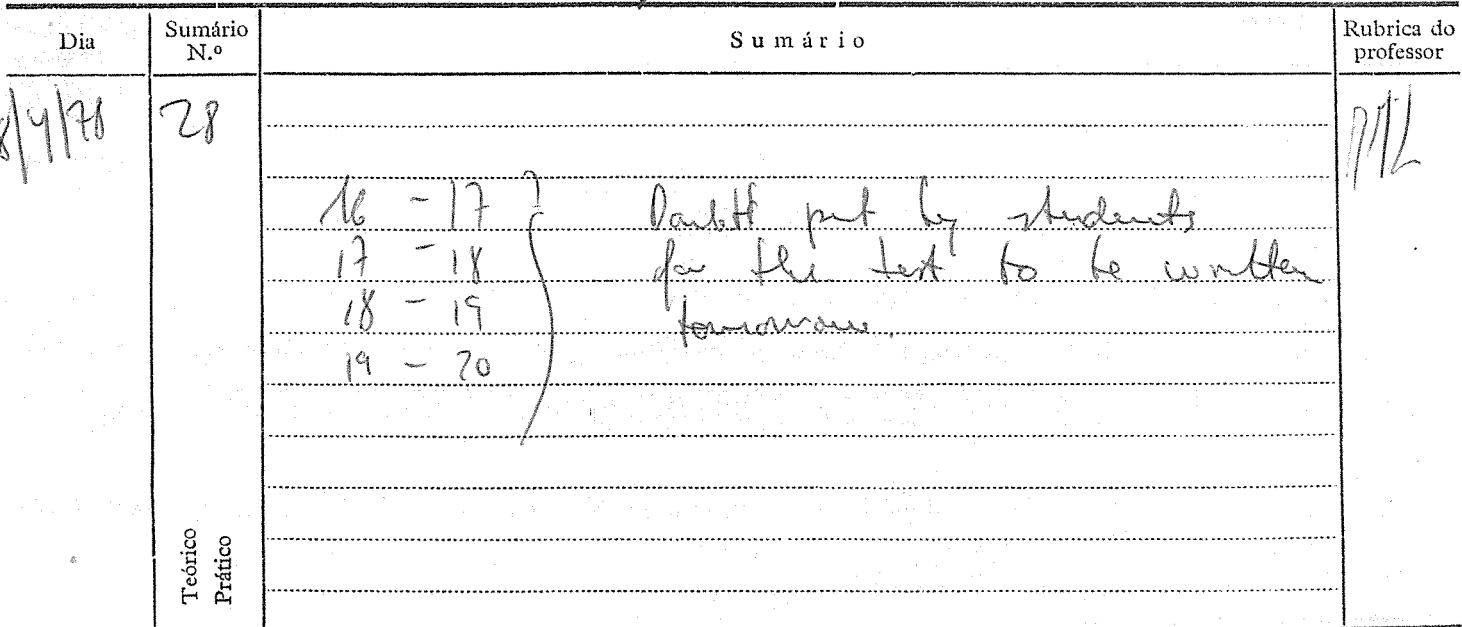 Dia Sumário N.º Sumário Rubrica do professor
8/4/78 28
16 - 17 Doubts put by students
17 - 18 for the test to be written
18 - 19 tomorrow.
19 - 20
Teórico
Prático